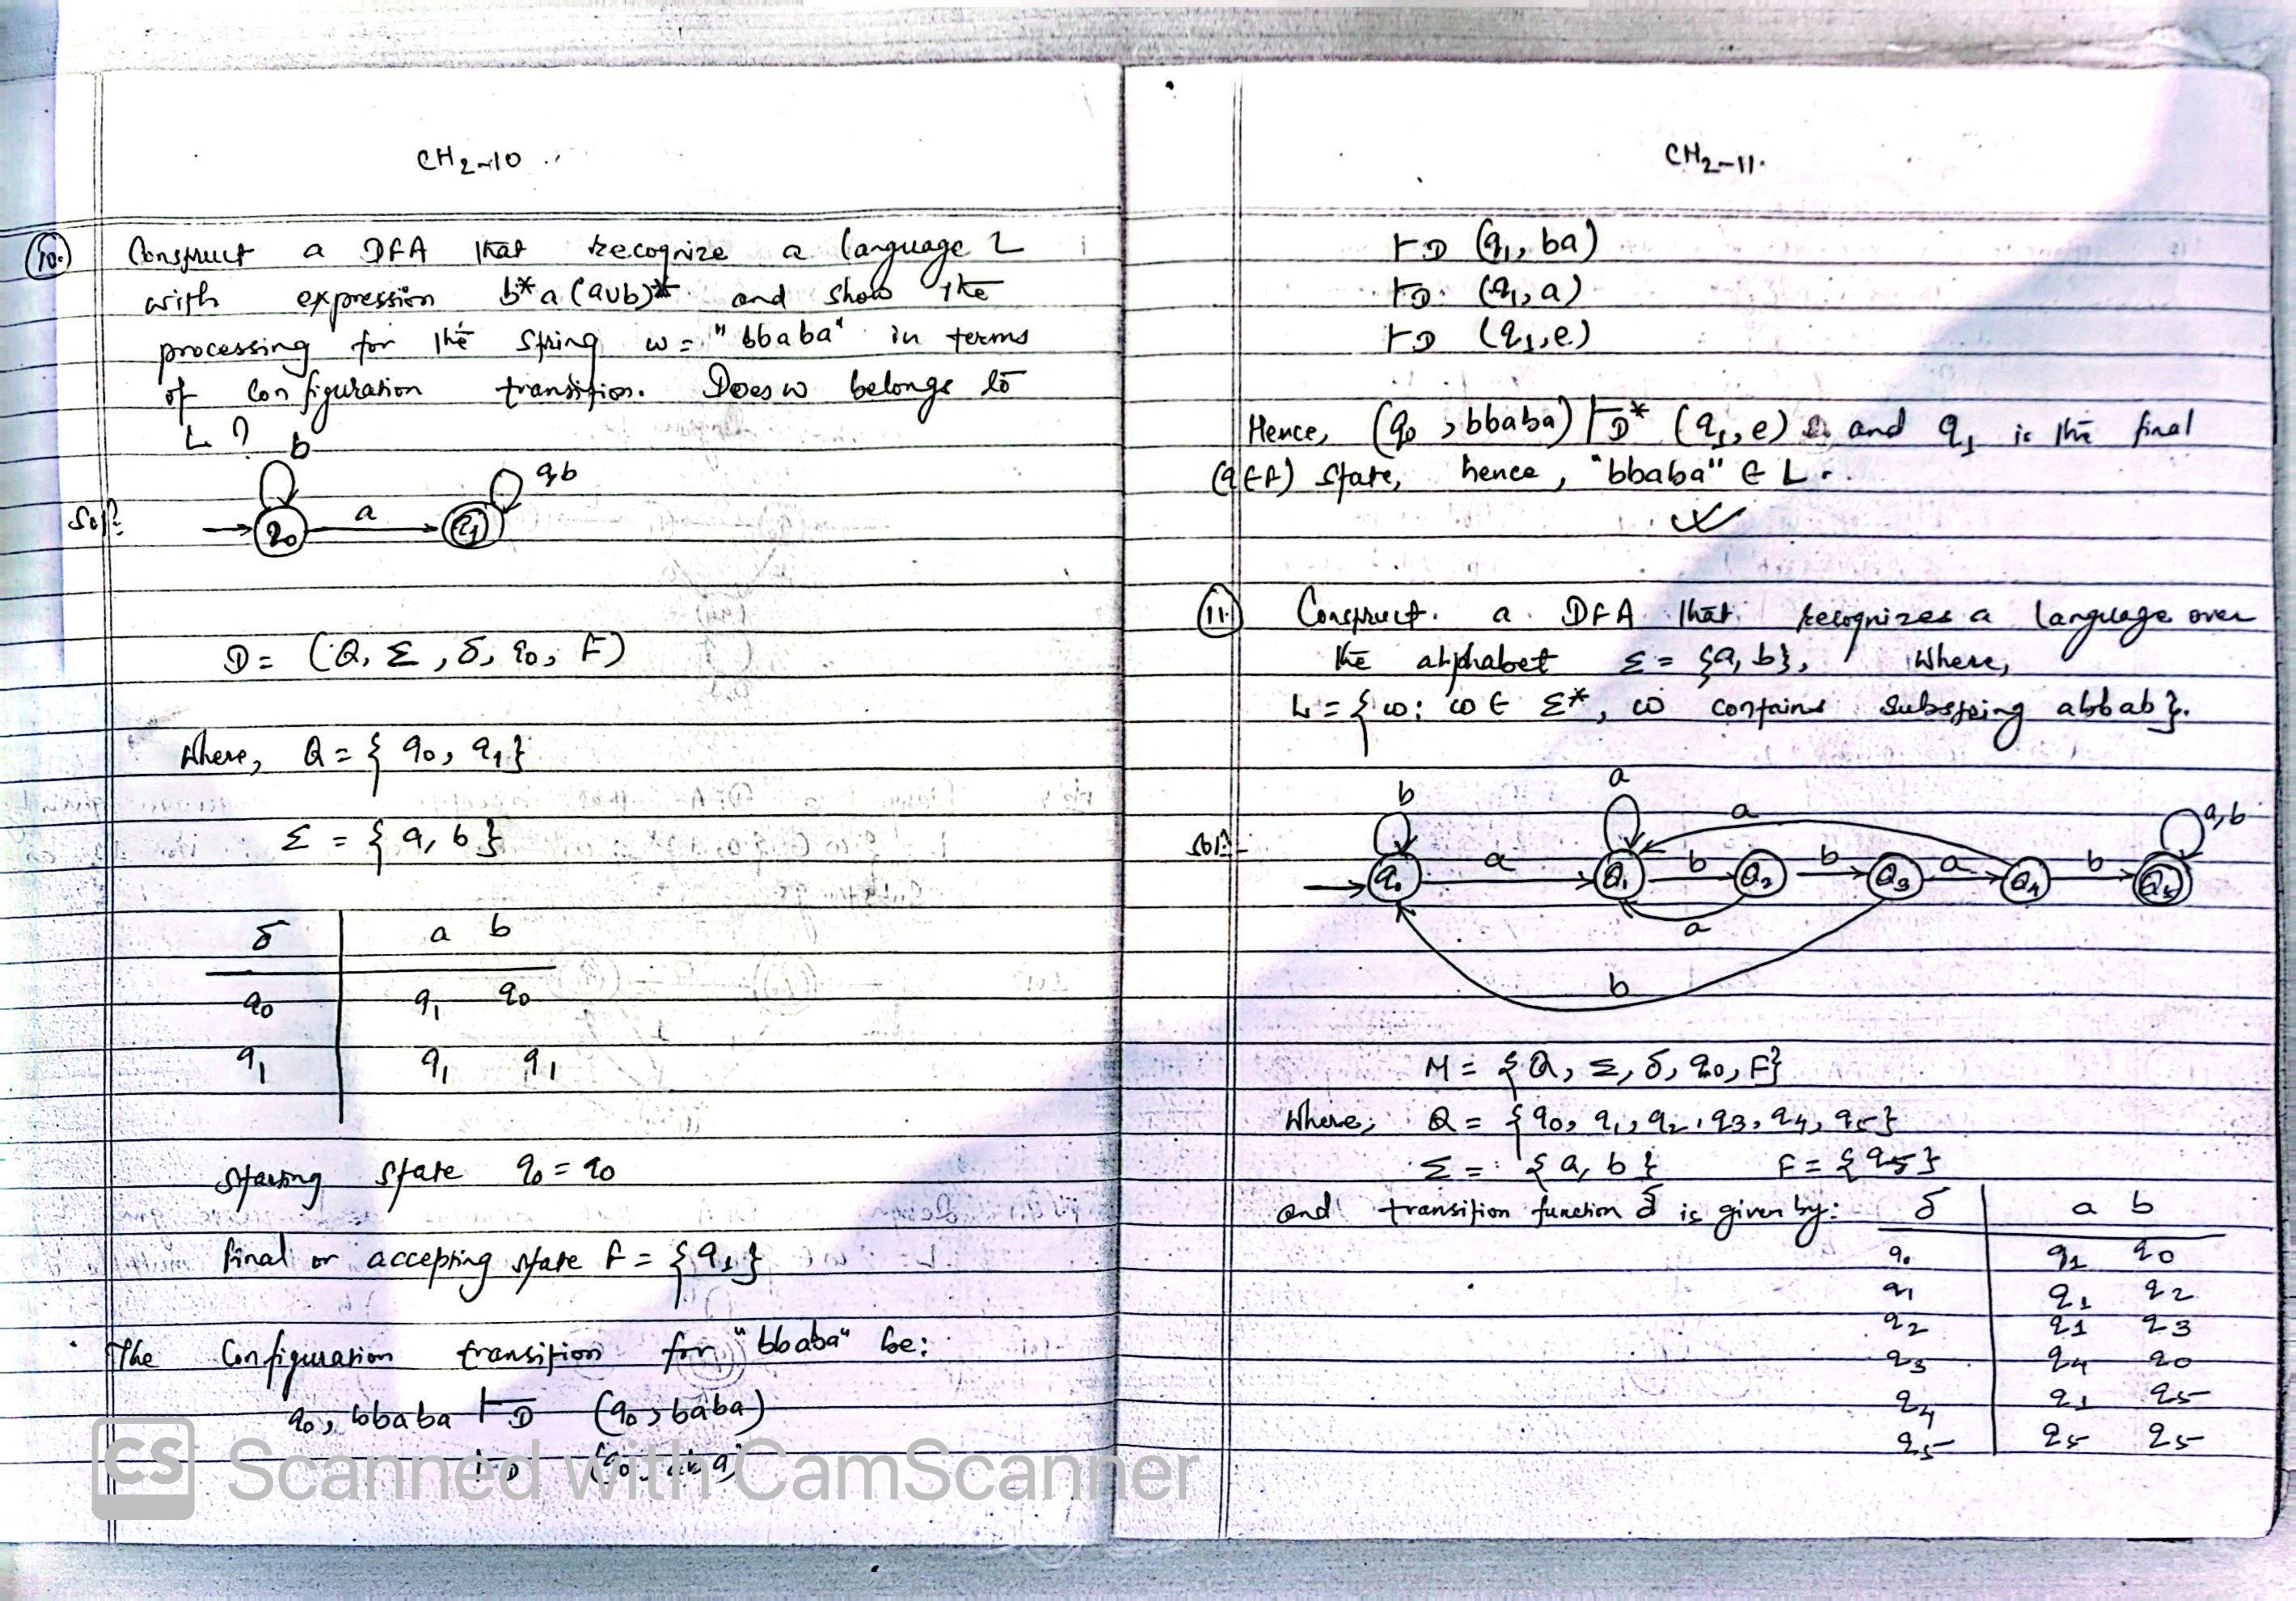 CH2-10
10. Construct a DFA that recognize a language L
with expression b*a(aub)* and show the
processing for the string w = "bbaba" in terms
of configuration transition. Does w belongs to
L ?
b
a,b
Solⁿ:
q0 a q1
D = (Q, Σ, δ, q0, F)
Where, Q = { q0, q1}
Σ = { a, b }
δ a b
q0 q1 q0
q1 q1 q1
starting state q0 = q0
final or accepting state F = {q1}
The configuration transition for "bbaba" be:
q0, bbaba ⊢D (q0, baba)
⊢D (q0, aba)
CS Scanned with CamScanner
CH2-11.
⊢D (q1, ba)
⊢D (q1, a)
⊢D (q1, e)
Hence, (q0, bbaba) ⊢D* (q1, e) and q1 is the final
(q∈F) state, hence, "bbaba" ∈ L.
11. Construct a DFA that recognizes a language over
the alphabet Σ = {a, b}, where,
L = { w: w ∈ Σ*, w contains substring abbab}.
b a a a,b
Solⁿ:-
q0 a Q1 b Q2 b Q3 a Q4 b Q5
a
b
M = {Q, Σ, δ, q0, F}
Where, Q = {q0, q1, q2, q3, q4, q5}
Σ = {a, b} F = {q5}
and transition function δ is given by: δ a b
q0 q1 q0
q1 q1 q2
q2 q1 q3
q3 q4 q0
q4 q1 q5
q5 q5 q5